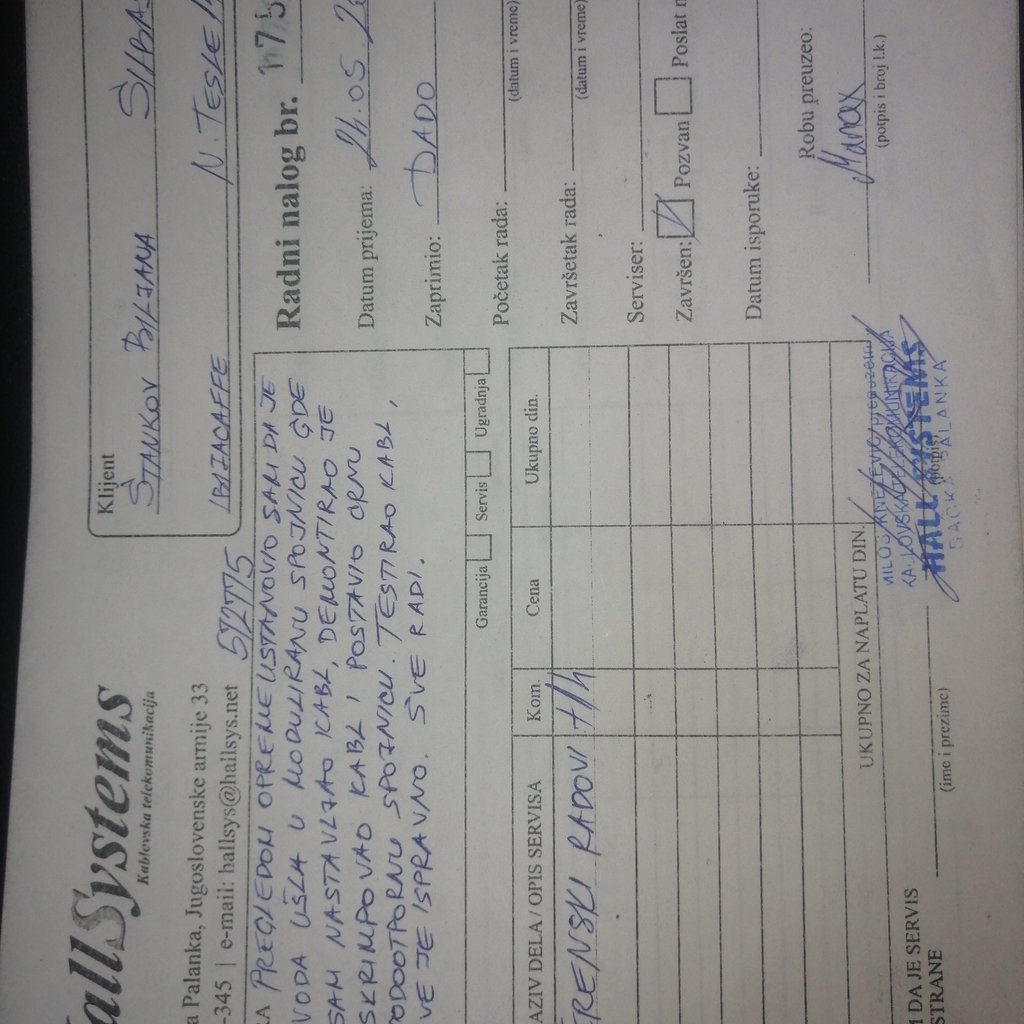 HallSystems
Kablovska telekomunikacija
a Palanka, Jugoslovenske armije 33
-345 | e-mail: hallsys@hallsys.net
51275
Klijent
STANKOV BILJANA
N. TESLE
Radni nalog br.
Datum prijema: 24.05.
Zaprimio: DADO
Početak rada:
(datum i vreme)
Završetak rada:
(datum i vreme)
Serviser:
Završen: Pozvan Poslat
Datum isporuke:
Robu preuzeo:
(potpis i broj l.k.)
PREGLEDOM OPREME USTANOVIO SAM DA JE
VODA UŠLA U MODULIRANU SPOJNICU GDE
SAM NASTAVLJAO KABL, DEMONTIRAO JE
SKRIMPOVAO KABL I POSTAVIO CRNU
VODOOTPORNU SPOJNICU. TESTIRAO KABL,
SVE JE ISPRAVNO. SVE RADI.
Garancija Servis Ugradnja
AZIV DELA / OPIS SERVISA Kom. Cena Ukupno din.
TERENSKI RADOVI
UKUPNO ZA NAPLATU DIN.
MILOŠ KNEŽEVIĆ preduzetnik
KABLOVSKA TELEKOMUNIKACIJA
HALL SISTEMS
BAČKA PALANKA
(potpis)
DA JE SERVIS
STRANE
(ime i prezime)